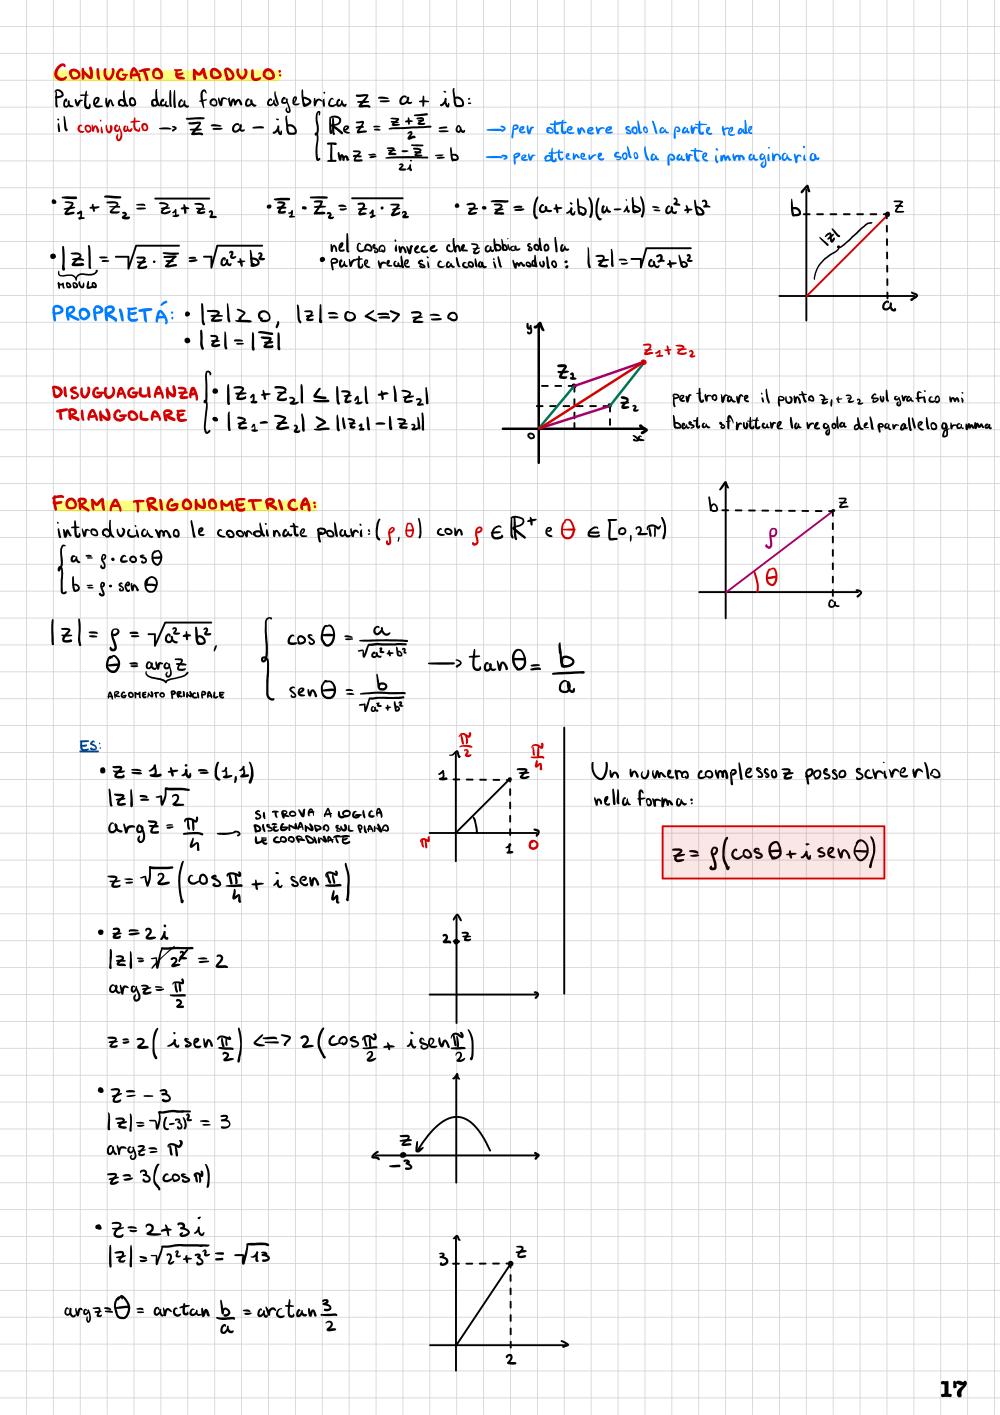 CONIUGATO E MODULO:
Partendo dalla forma algebrica z = a + ib:
il coniugato → z̅ = a - ib { Re z = (z + z̅)/2 = a → per ottenere solo la parte reale
Im z = (z - z̅)/2i = b → per ottenere solo la parte immaginaria
• z̅₁ + z̅₂ = \overline{z₁ + z₂} • z̅₁ · z̅₂ = \overline{z₁ · z₂} • z · z̅ = (a+ib)(a-ib) = a² + b²
• |z| = √(z · z̅) = √(a² + b²)
MODULO
nel caso invece che z abbia solo la
• parte reale si calcola il modulo: |z| = √(a² + b²)
b z
|z|
a
PROPRIETÁ: • |z| ≥ 0, |z| = 0 <=> z = 0
• |z| = |z̅|
DISUGUAGLIANZA
TRIANGOLARE
• |z₁ + z₂| ≤ |z₁| + |z₂|
• |z₁ - z₂| ≥ ||z₁| - |z₂||
y
z₁ + z₂
z₁
z₂
0 x
per trovare il punto z₁ + z₂ sul grafico mi
basta sfruttare la regola del parallelogramma
FORMA TRIGONOMETRICA:
introduciamo le coordinate polari: (ρ, θ) con ρ ∈ ℝ⁺ e θ ∈ [0, 2π)
{ a = ρ · cos θ
b = ρ · sen θ
b z
ρ
θ
a
|z| = ρ = √(a² + b²),
θ = arg z
ARGOMENTO PRINCIPALE
{ cos θ = a/√(a² + b²)
sen θ = b/√(a² + b²)
→ tan θ = b/a
ES:
• z = 1 + i = (1,1)
|z| = √2
arg z = π/4 → SI TROVA A LOGICA
DISEGNANDO SUL PIANO
LE COORDINATE
z = √2 (cos π/4 + i sen π/4)
π/2 π/4
1 z
π 1 0
Un numero complesso z posso scriverlo
nella forma:
z = ρ(cos θ + i sen θ)
• z = 2i
|z| = √2² = 2
arg z = π/2
z = 2( i sen π/2) <=> 2(cos π/2 + i sen π/2)
2 z
• z = - 3
|z| = √(-3)² = 3
arg z = π
z = 3(cos π)
z
-3
• z = 2 + 3i
|z| = √(2² + 3²) = √13
arg z = θ = arctan b/a = arctan 3/2
3 z
2
17